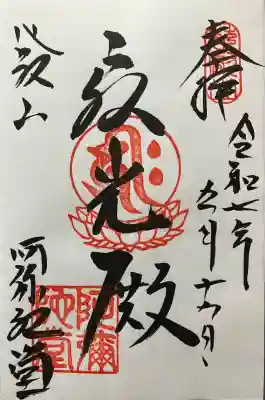 奉拝
令和七年
五月十六日
寂光殿
比叡山
阿弥陀堂
阿彌陀堂